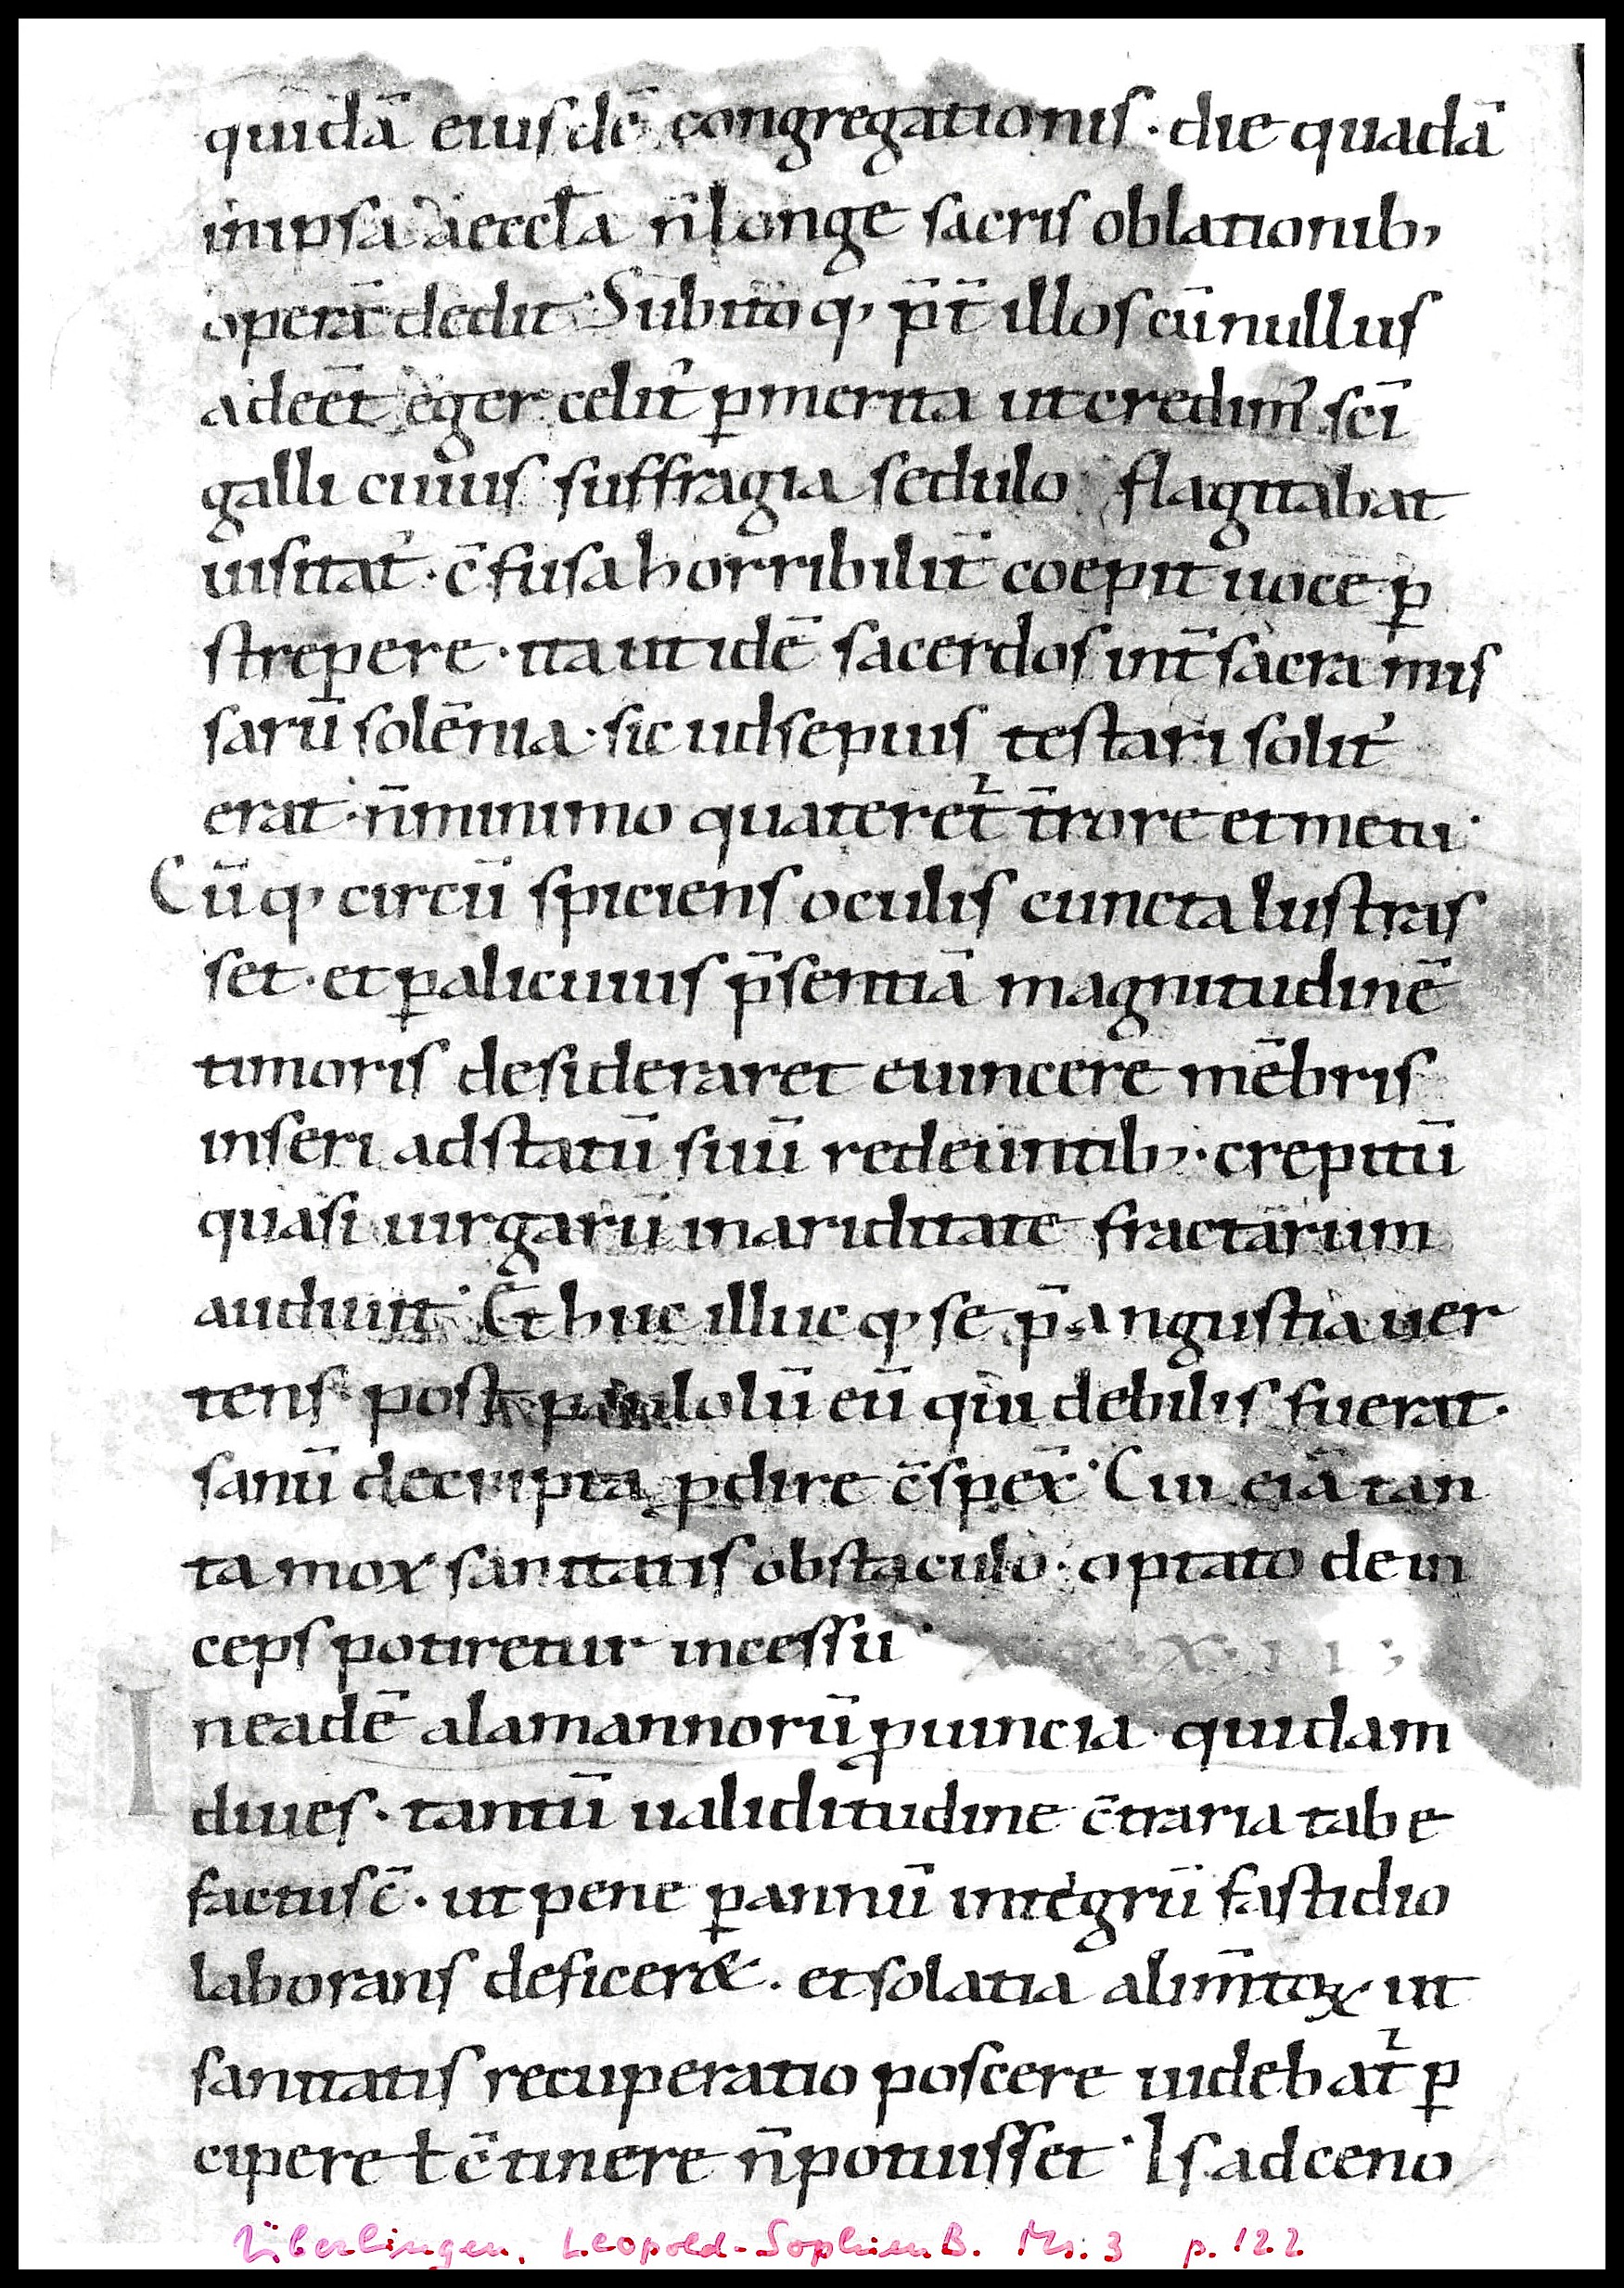 quidā eiusdē congregationis · die quadā
inipsa aeccl̄a n̄ longe sacris oblationib;
operā dedit · Subitoq; p̄t̄ illos cū nullus
adeēt eger celit᷒ ꝑ merita ut credim᷒ · sc̄i
galli cuius suffragia sedulo flagitabat
uisitat᷒ · c̄fusa horribilit̄ coepit uoce ꝑ
strepere · ita ut idē sacerdos int̄ sacra mis
sarū solēnia · sic ud sepius testari solit᷒
erat · n̄ minimo quateret᷒ t̄rore et metu ·
Cūq; circū spiciens oculis cuncta lustras
set · et ꝑ alicuius p̄sentiā magnitudinē
timoris desideraret euincere mēbris
inseri ad statū suū redeuntib; · crepitū
quasi uirgarū in ariditate fractarum
audiuit · Et huc illucq; se p̄ angustia uer
tens · post paululū eū qui debilis fuerat ·
sanū de cripta ꝓdire c̄spex̄ · Cui eiā tan
ta mox sanitatis obstaculo · optato dein
ceps potiretur incessu · X·X·X·I I I ;
In eadē alamannorū ꝓuincia · quidam
diues · tantū ualiditudine c̄traria tabe
factus ē · ut pene ꝑ annū integrū fastidio
laborans deficer& · et solatia alim̄toꝝ · ut
sanitatis recuperatio poscere uidebat᷒ ꝑ
cipere ł c̄tinere n̄ potuisset · Is ad ceno
Überlingen, Leopold-Sophien B. Ms. 3 p. 122